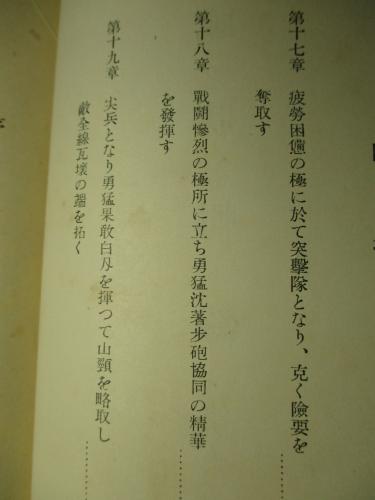 第十七章 疲勞困憊の極に於て突擊隊となり、克く險要を
奪取す
第十八章 戰鬪慘烈の極所に立ち勇猛沈著步砲協同の精華
を發揮す
第十九章 尖兵となり勇猛果敢白刄を揮つて山頸を略取し
敵全線瓦壞の端を拓く